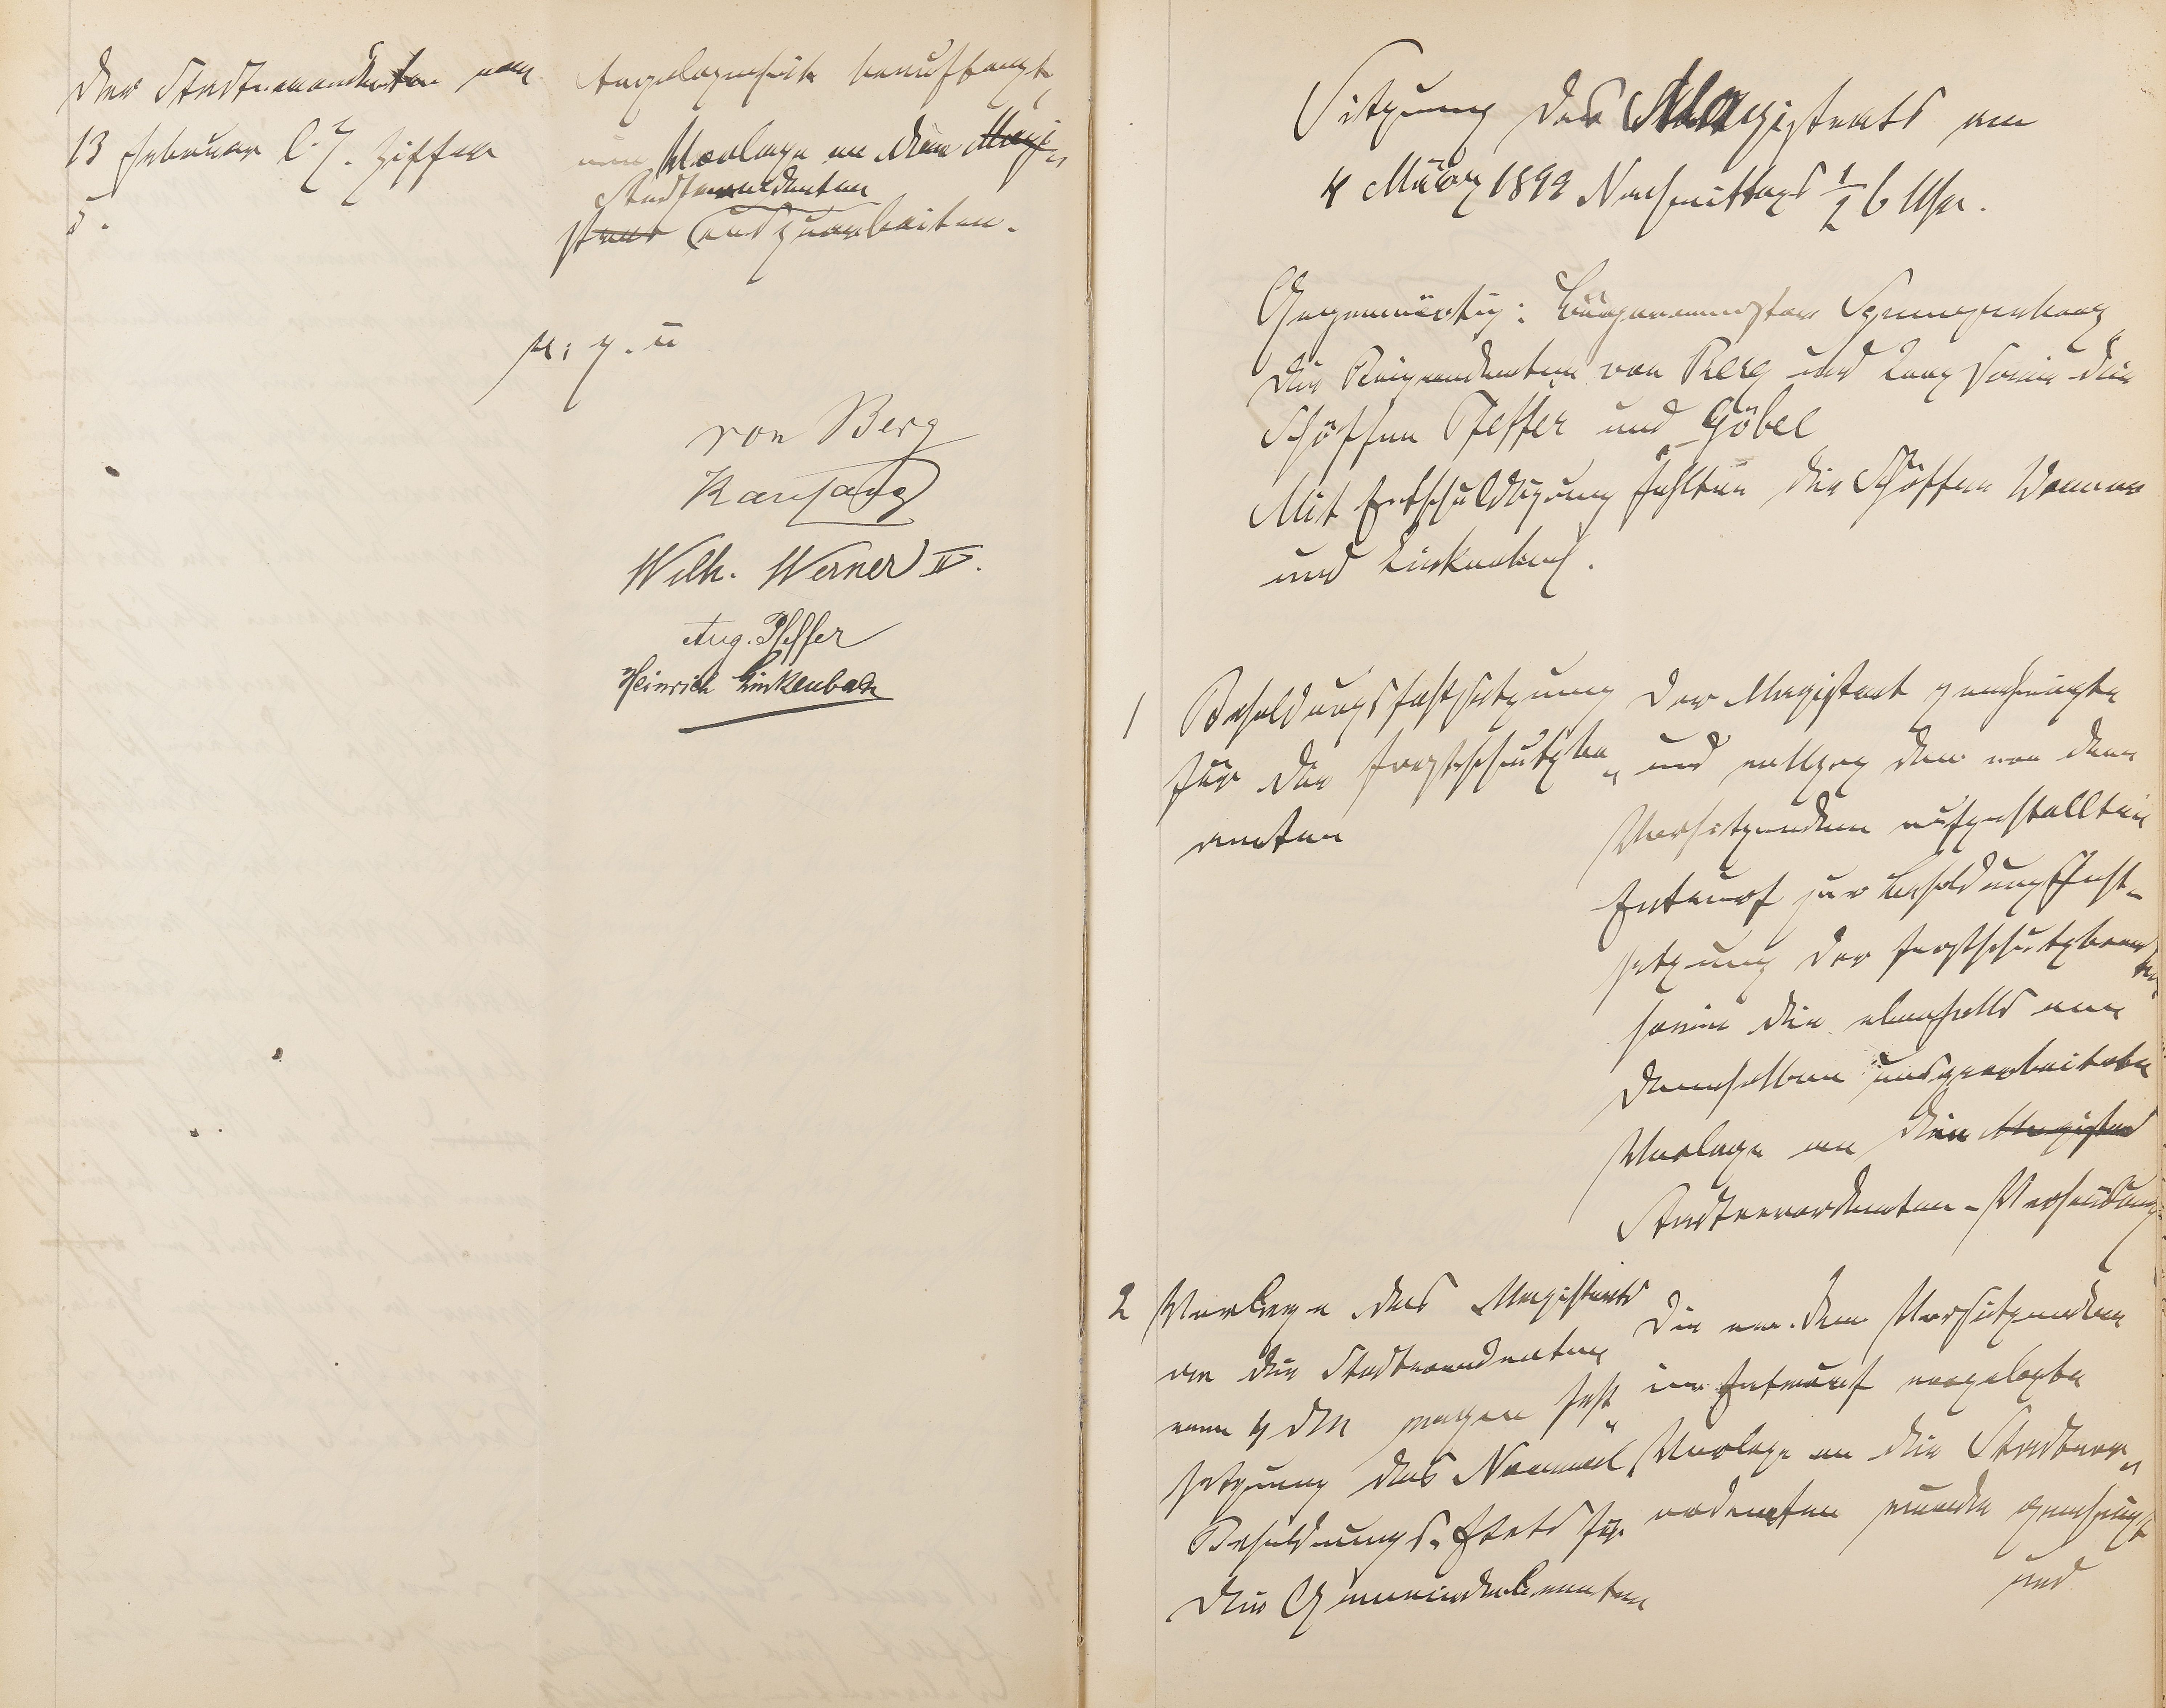 der Stadtverordneten vom
13 Februar l. J. Ziffer
5.
Angelegenheit beauftragt,
eine Vorlage an die Magi-
Stadtverordneten
strat auszuarbeiten.
v. g. u
von Berg
Kaufang
Wilh. Werner IV.
Aug. Pfeffer
Heinrich Linkenbach
Sitzung des Magistrats am
4 März 1892 Nachmittags 1/2 6 Uhr.
Gegenwärtig: Bürgermeister
die Beigeordneten von Berg und Lang sowie die
Schöffen Pfeffer und Göbel
Mit Entschuldigung fehlten die Schöffen Werner
und Linkenbach.
1 Besoldungsfestsetzung
für die Forstschutzbe-
amten
Der Magistrat genehmigte
und vollzog den von dem
Vorsitzenden aufgestellten
Entwurf zur Besoldungsfest-
setzung der Forstschutzbeamten
sowie die ebenfalls von
demselben ausgearbeitete
Vorlage an die Magistrat
Stadtverordneten-Versammlung
2 Vorlage des Magistrats
an die Stadtverordneten
vom 4 d M wegen Fest-
setzung des Normal
Besoldungs-Etats für
die Gemeindebeamten
Die von dem Vorsitzenden
im Entwurf vorgelegte
Vorlage an die Stadtver-
ordneten wurde genehmigt
und